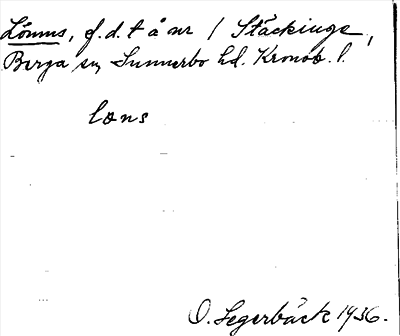 Lönns, f.d. t å nr 1 Stäckinge,
Berga sn, Sunnerbo hd. Kronob. l.
lons
O. Segerbäck 1936.